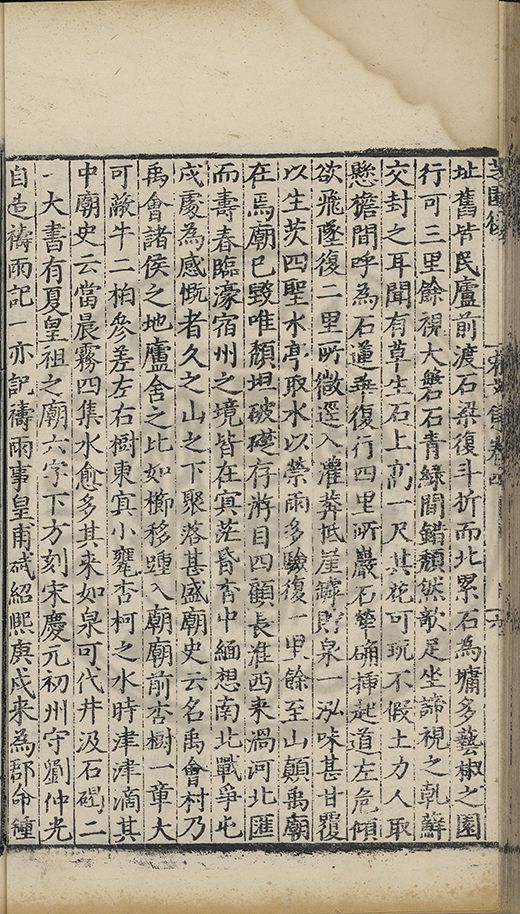 址舊皆民廬前渡石梁復斗折而北累石為墉多藝椒之園
行可三里餘視大磐石青綠間錯頽然欹足坐諦視之乹蘚
交封之耳聞有草生石上高一尺其花可玩不假土力人取
懸檐間呼為石蓮華復行四里所巖石犖确揷起道左危傾
欲飛墜復二里所微逕入灌莽抵崖罅則泉一泓味甚甘覆
以生茨四聖水亭取水以禜雨多驗復一里餘至山顛禹廟
在焉廟已毀唯頽垣破礎存游目四顧長淮西來渦河北匯
而壽春臨濠宿州之境皆在㝠茫昏杳中緬想南北戰爭屯
戍處為感慨者久之山之下聚落甚盛廟史云名禹會村乃
禹會諸侯之地廬舍之比如櫛移踵入廟廟前杏樹一章大
可蔽牛二柏參差左右樹東寘小甕杏柯之水時津津滴其
中廟史云當晨霧四集水愈多其来如泉可代井汲石碣二
一大書有夏皇祖之廟六字下方刻宋慶元初州守劉仲光
自造禱雨記一亦記禱雨事皇甫斌紹熙庚戌来為郡命鍾